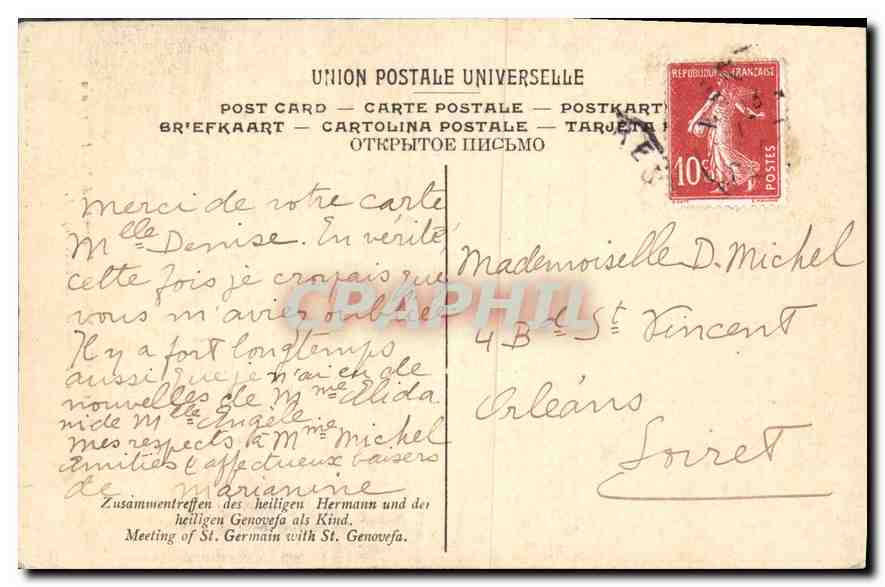 UNION POSTALE UNIVERSELLE
POST CARD — CARTE POSTALE — POSTKART
BRIEFKAART — CARTOLINA POSTALE — TARJETA
ОТКРЫТОЕ ПИСЬМО
REPUBLIQUE FRANÇAISE
10c
POSTES
merci de votre carte
Mlle Denise. En vérité,
cette fois je croyais que
vous m'aviez oubliée
Il y a fort longtemps
aussi que je n'ai eu de
nouvelles de Mme Elida
ni de Mlle Angèle
mes respects à Mme Michel
Amitiés & affectueux baisers
de Marianine
Mademoiselle D. Michel
4 Bd St Vincent
Orléans
Loiret
Zusammentreffen des heiligen Hermann und der
heiligen Genovefa als Kind.
Meeting of St. Germain with St. Genovefa.
CPAPHIL